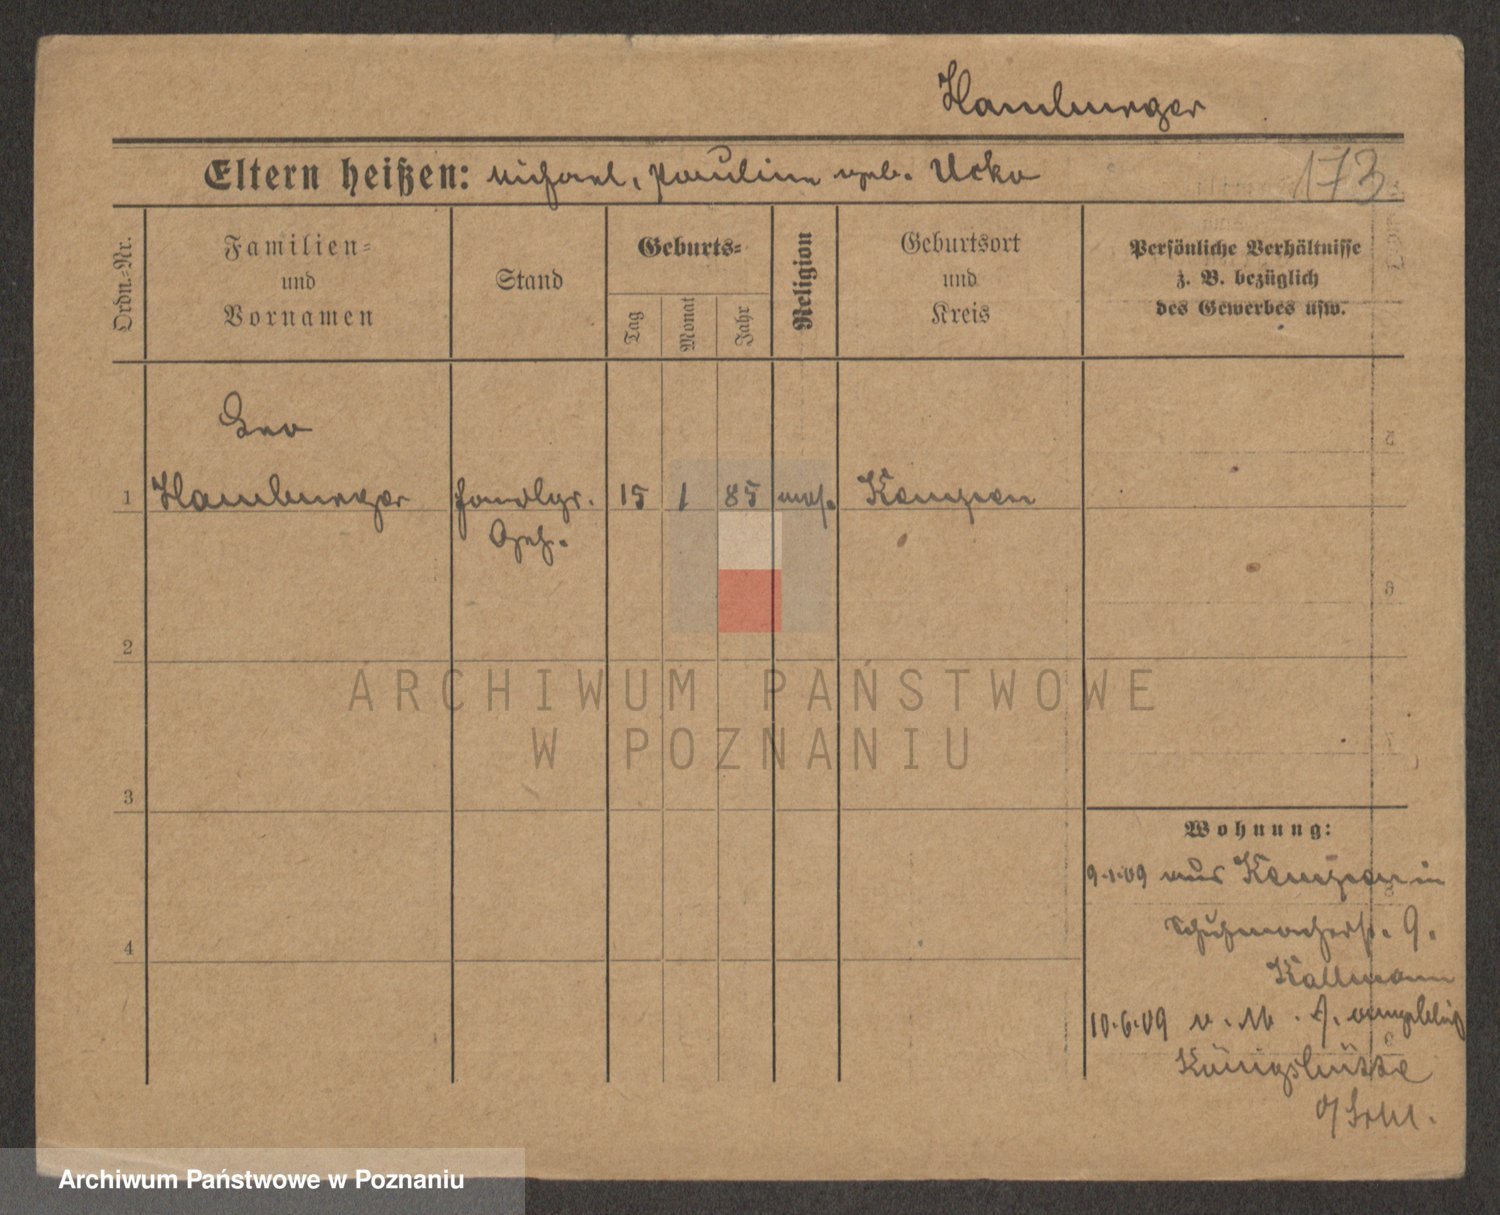 Hamburger
Eltern heißen: Michael, Pauline geb. Ucko
173
Ordn.-Nr.
Familien-
und
Vornamen
Stand
Geburts-
Tag
Monat
Jahr
Religion
Geburtsort
und
Kreis
Persönliche Verhältnisse
z. B. bezüglich
des Gewerbes usw.
Leo
1 Hamburger Handlgs. 15 1 85 mos. Kempen
Geh.
2
3
4
Wohnung:
9.1.09 aus Kempen in
Schuhmacherst. 9.
Kallmann
10.6.09 angeblich
Königshütte
O/Schl.
ARCHIWUM PAŃSTWOWE
W POZNANIU
Archiwum Państwowe w Poznaniu